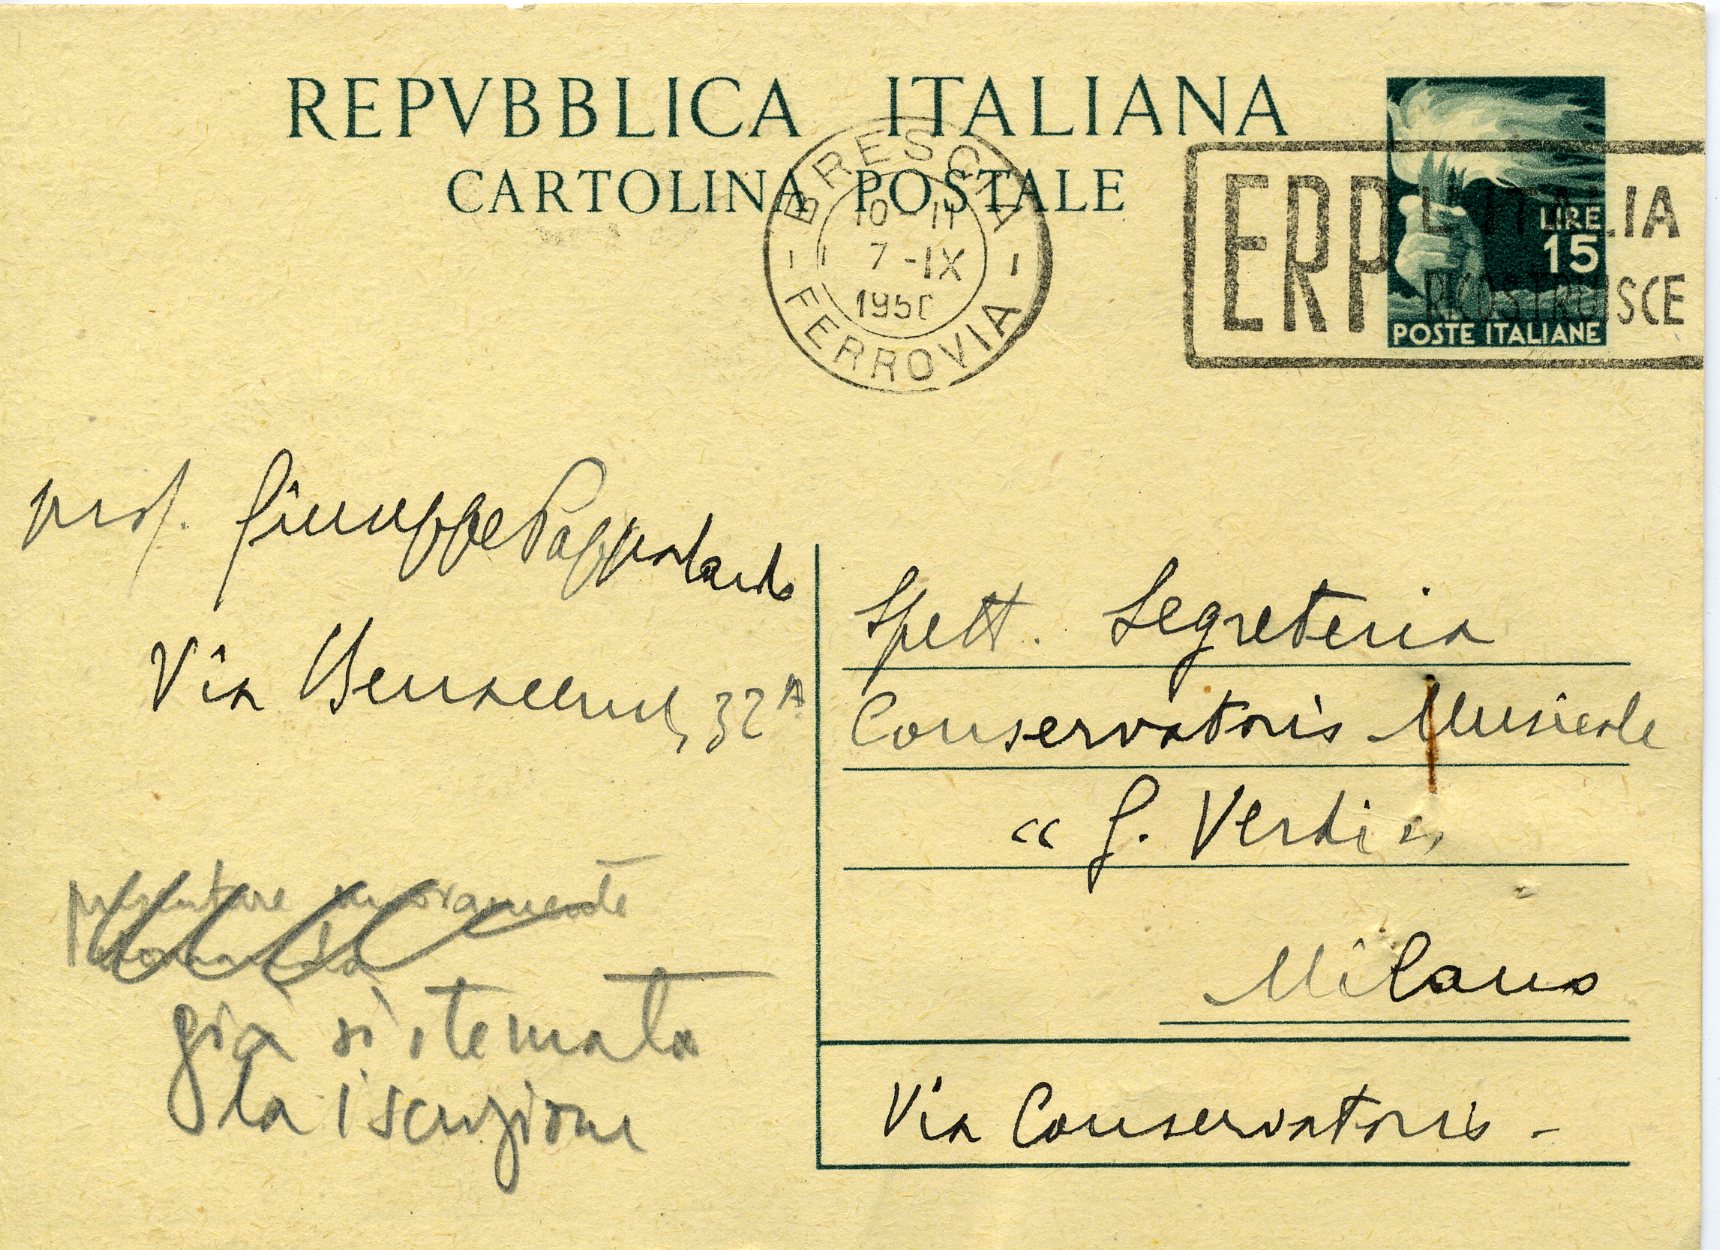 REPVBBLICA ITALIANA
CARTOLINA POSTALE
BRESCIA
10-11
7-IX
1950
FERROVIA
ERP L'ITALIA
RICOSTRUISCE
LIRE
15
POSTE ITALIANE
prof. Giuseppe Pappalardo
Via Benacense, 32A
Spett. Segreteria
Conservatorio Musicale
"G. Verdi"
Milano
Via Conservatorio -
presentare nuovamente
domanda
già sistemata
la iscrizione